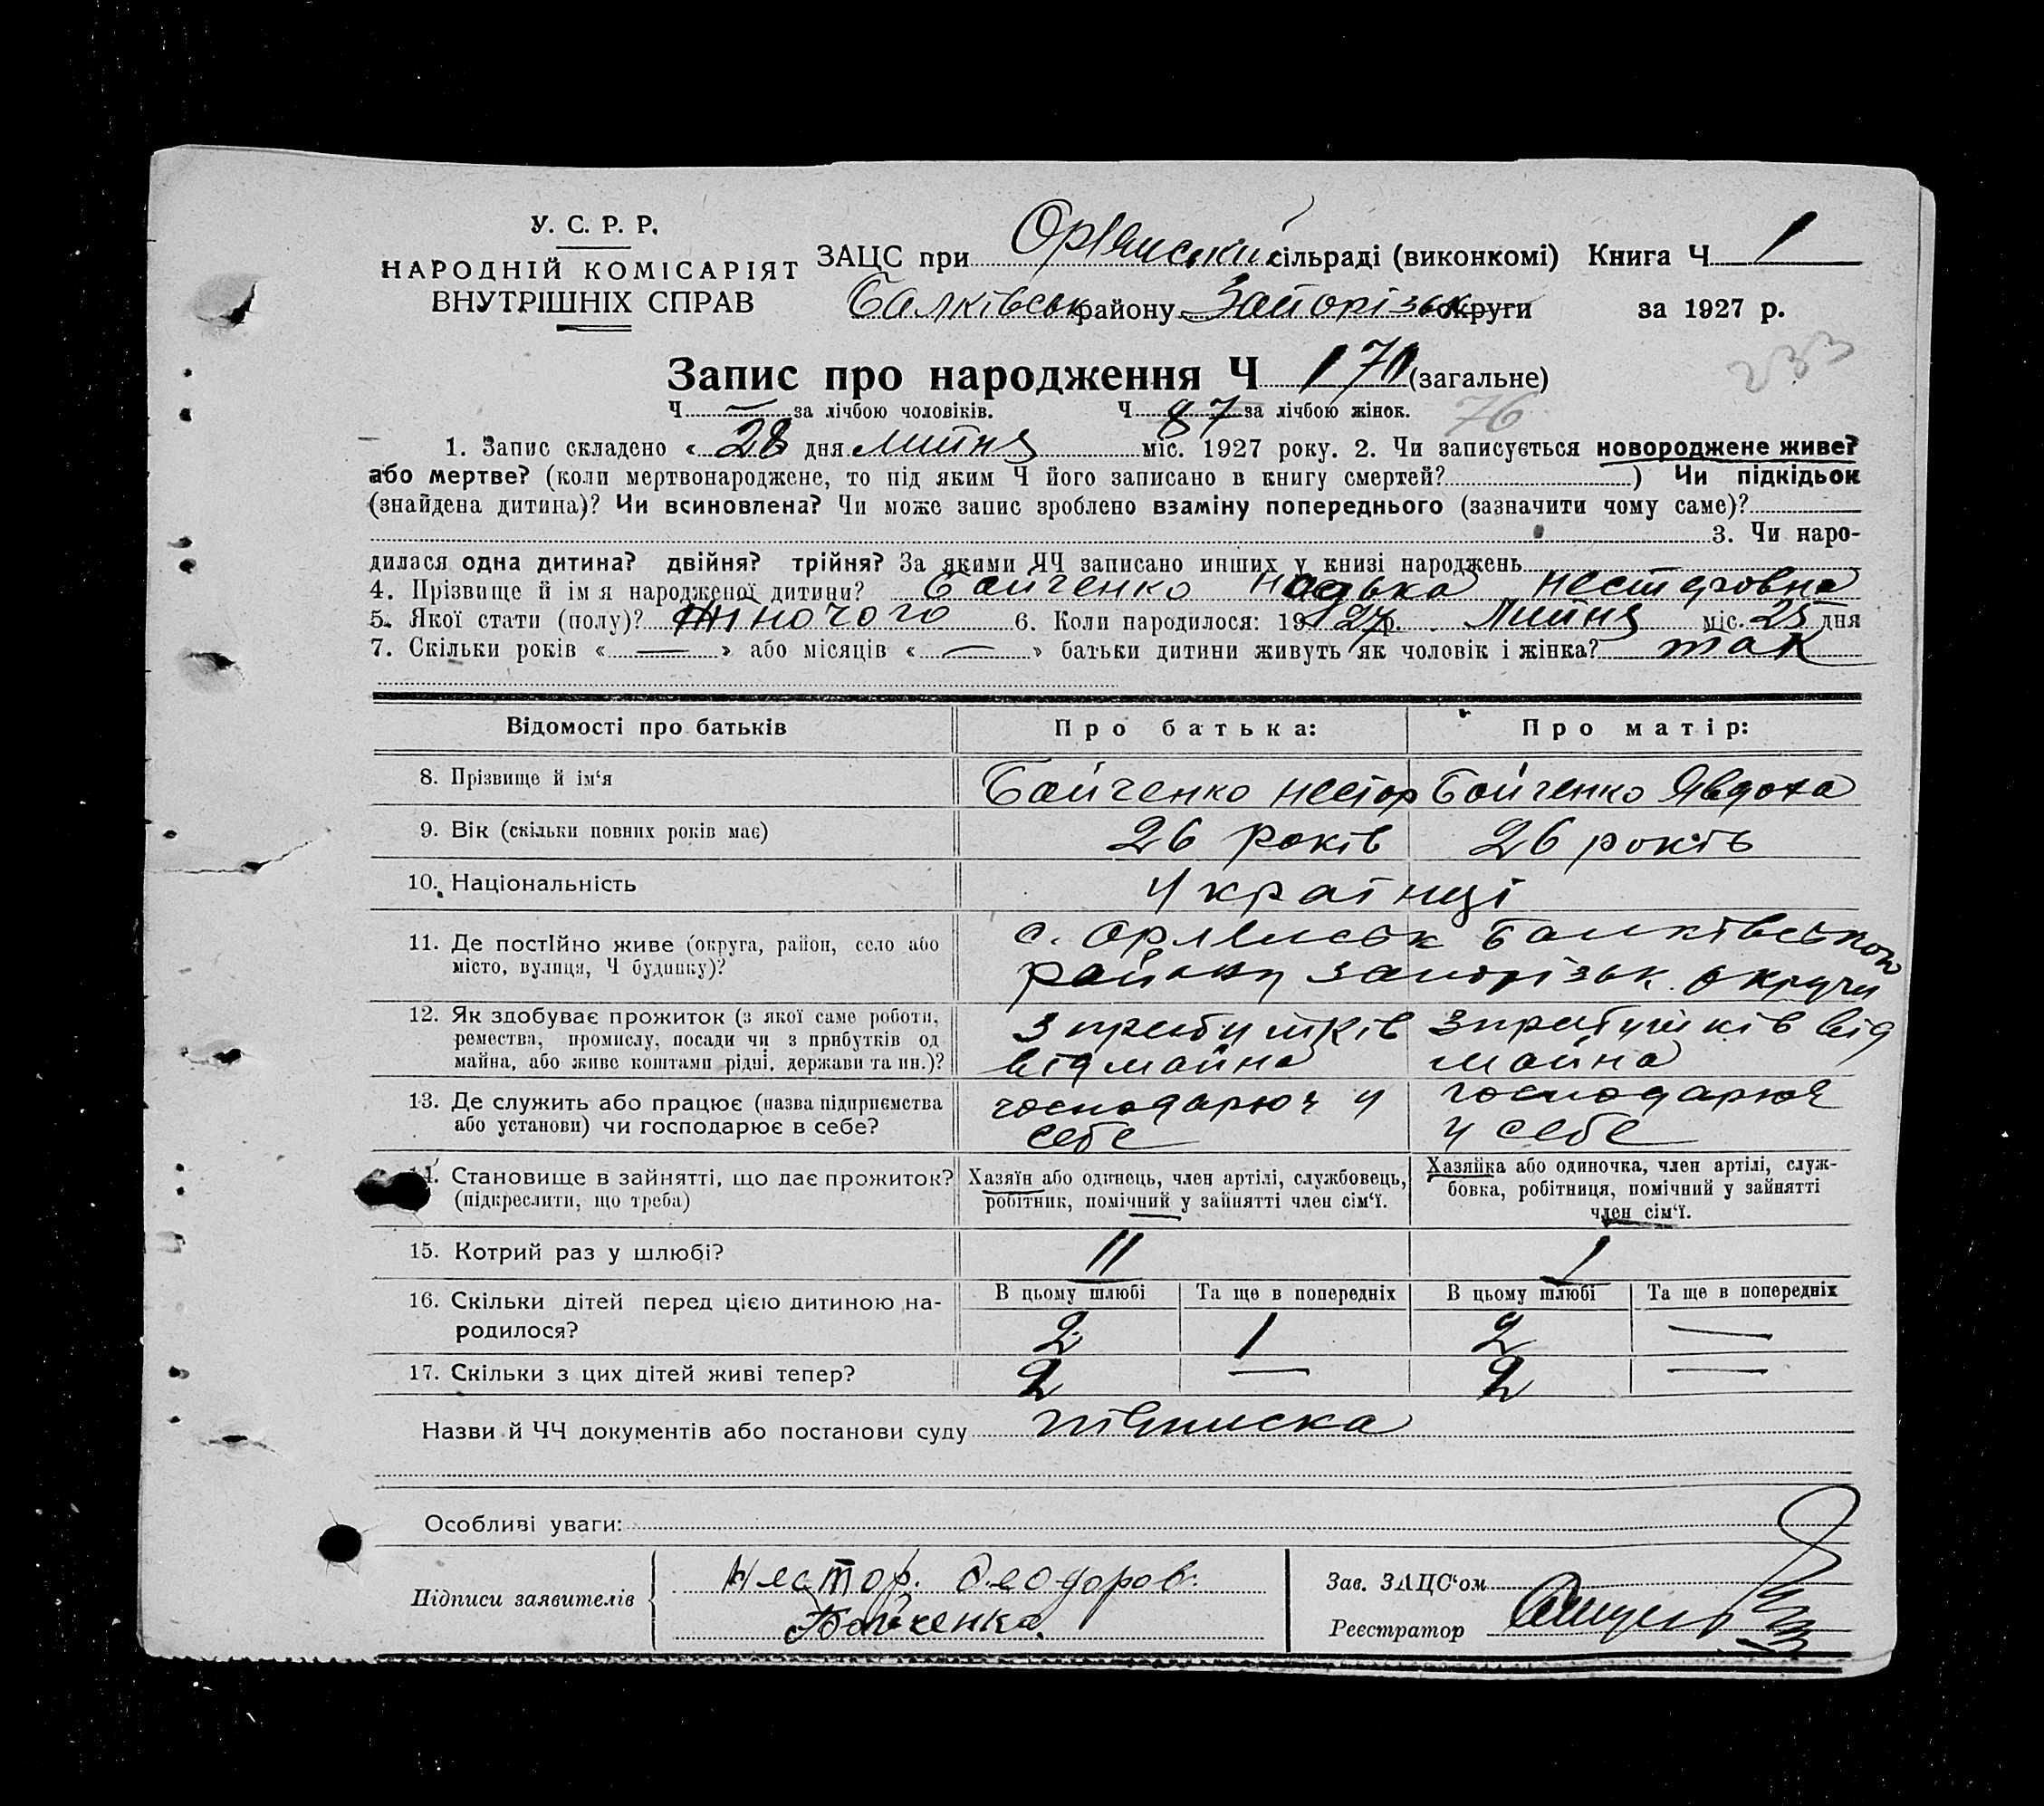 У. С. Р. Р.
НАРОДНІЙ КОМІСАРІЯТ
ВНУТРІШНІХ СПРАВ
ЗАЦС при Орлянській сільраді (виконкомі) Книга Ч 1
Балківськ району Запорізьк округи за 1927 р.
233
Запис про народження Ч 170 (загальне)
Ч — за лічбою чоловіків. Ч 87 за лічбою жінок. 76
1. Запис складено « 28 дня липня міс. 1927 року. 2. Чи записується новороджене живе?
або мертве? (коли мертвонароджене, то під яким Ч його записано в книгу смертей? ) Чи підкідьок
(знайдена дитина)? Чи всиновлена? Чи може запис зроблено взаміну попереднього (зазначити чому саме)?
3. Чи наро-
дилася одна дитина? двійня? трійня? За якими ЧЧ записано инших у книзі народжень
4. Прізвище й ім'я народженої дитини? Байченко Надька Несторовна
5. Якої стати (полу)? жіночого 6. Коли народилося: 1927 р. Липня міс. 25 дня
7. Скільки років « — » або місяців « — » батьки дитини живуть як чоловік і жінка? так
Відомості про батьків Про батька: Про матір:
8. Прізвище й ім'я Байченко Нестор Байченко Явдоха
9. Вік (скільки повних років має) 26 років 26 років
10. Національність Українці
11. Де постійно живе (округа, район, село або
місто, вулиця, Ч будинку)?
с. Орлянськ Балківського
району Запорізьк. округи
12. Як здобуває прожиток (з якої саме роботи,
ремества, промислу, посади чи з прибутків од
майна, або живе коштами рідні, держави та ин.)?
З прибутків
від майна
З прибутків від
майна
13. Де служить або працює (назва підприємства
або установи) чи господарює в себе?
господарює у
себе
господарює
у себе
14. Становище в зайнятті, що дає прожиток?
(підкреслити, що треба)
Хазяїн або одинець, член артілі, службовець,
робітник, помічний у зайнятті член сім'ї.
Хазяйка або одиночка, член артілі, служ-
бовка, робітниця, помічний у зайнятті
член сім'ї.
15. Котрий раз у шлюбі? II I
16. Скільки дітей перед цією дитиною на-
родилося?
В цьому шлюбі Та ще в попередніх В цьому шлюбі Та ще в попередніх
2 1 2 —
17. Скільки з цих дітей живі тепер? 2 — 2 —
Назви й ЧЧ документів або постанови суду підписка
Особливі уваги:
Підписи заявителів
Нестор. Феодоров.
Байченка.
Зав. ЗАЦС'ом
Реєстратор